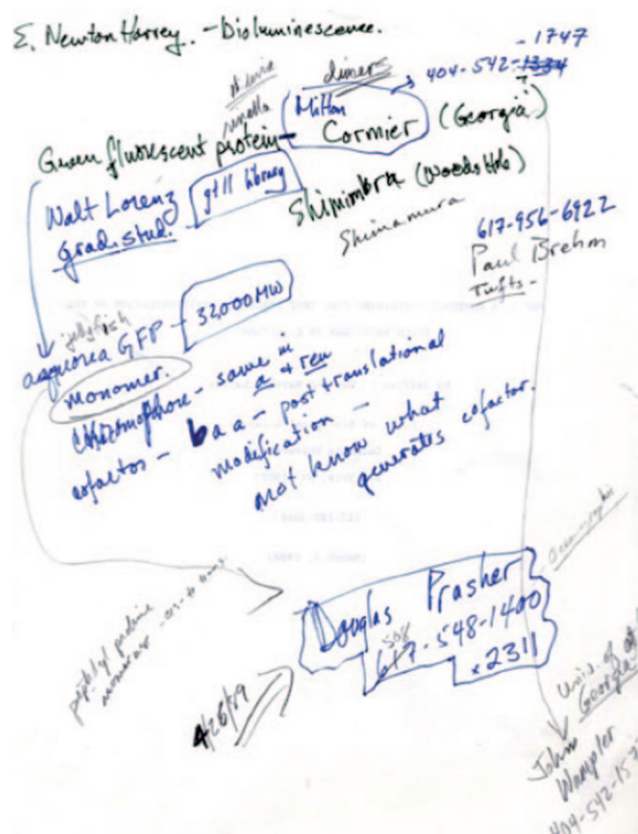 E. Newton Harvey. - Bioluminescence.
- 1747
404-542-1334
in vivo
dimers
renilla
Milton
Green fluorescent protein - Cormier (Georgia)
Walt Lorenz
grad. stud.
gt11 library
Shimimbra (Woods Hole)
Shinamura
617-956-6922
Paul Brehm
Tufts -
jellyfish
aequorea GFP - 32,000 MW
monomer.
chromophore - same in
a + ren
cofactor - 6 a a - post translational
modification -
not know what
generates cofactor.
Douglas Prasher
508
617-548-1400
x2311
4/26/89
peptidyl proline
cis - to trans.
Univ. of
Georgia
John
Wampler
404-542-157